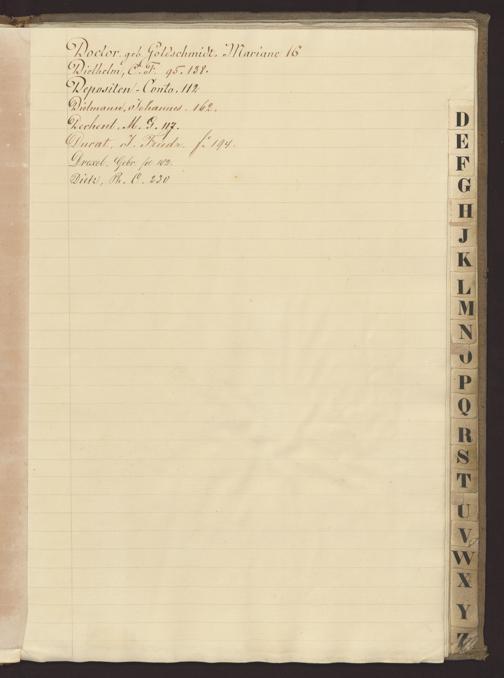 Doctor. geb. Goldschmidt. Mariane 16
Diethelm, C. F. 95. 138.
Depositen-Conto. 112
Dielmann, Johannes. 162.
Dechent. M. G. 117.
Durat, J. Friedr. fo 194.
Drexel. Gebr. fo 102.
Dietz, Ph. C. 230
D
E
F
G
H
J
K
L
M
N
O
P
Q
R
S
T
U
V
W
X
Y
Z